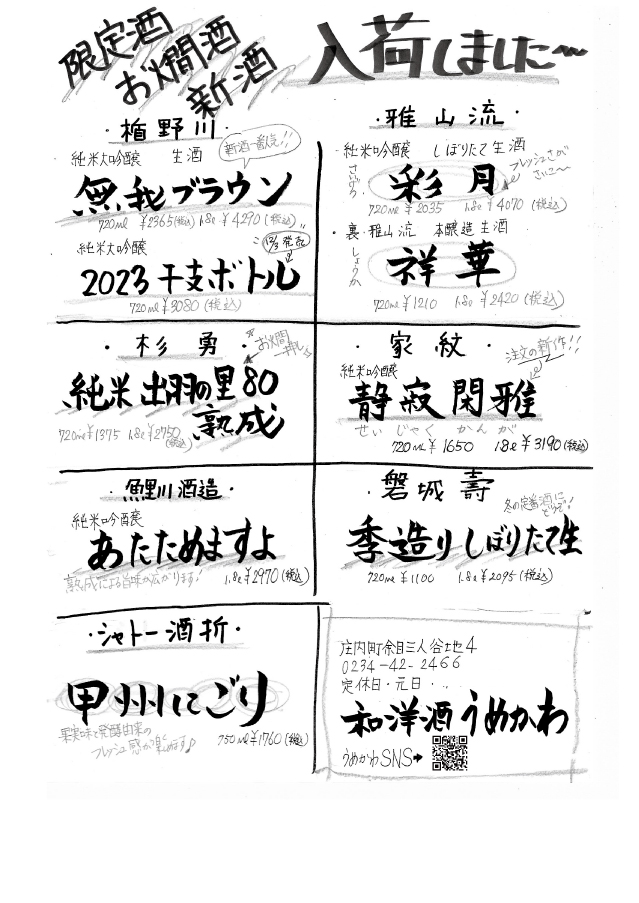 限定酒
お燗酒
新酒
入荷しました〜
・楯野川・
純米大吟醸 生酒
新酒一番人気!!
無我ブラウン
720ml ¥2365(税込) 1.8ℓ ¥4290(税込)
純米大吟醸
12/3発売
2023干支ボトル
720ml ¥3080(税込)
・雅山流・
・純米吟醸 しぼりたて生酒
さいげつ
彩月
フレッシュさが
さいこ〜
720ml ¥2035 1.8ℓ ¥4070(税込)
・裏・雅山流 本醸造生酒
しょうか
祥華
720ml ¥1210 1.8ℓ ¥2420(税込)
・杉勇・
お燗
一押し
純米出羽の里80
熟成
720ml ¥1375 1.8ℓ ¥2750(税込)
・家紋・
注文の新作!!
純米吟醸
静寂閑雅
せいじゃくかんが
720ml ¥1650 1.8ℓ ¥3190(税込)
・鯉川酒造・
純米吟醸
あたためますよ
熟成による旨味が広がります!
1.8ℓ ¥2970(税込)
・磐城壽
冬の定番酒に
どうぞ!
季造りしぼりたて生
720ml ¥1100 1.8ℓ ¥2095(税込)
・シャトー酒折・
甲州にごり
果実味と発酵由来の
フレッシュ感が楽しめます♪
750ml ¥1760(税込)
庄内町余目三人谷地4
0234-42-2466
定休日・元日・・・
和洋酒うめかわ
うめかわSNS➡